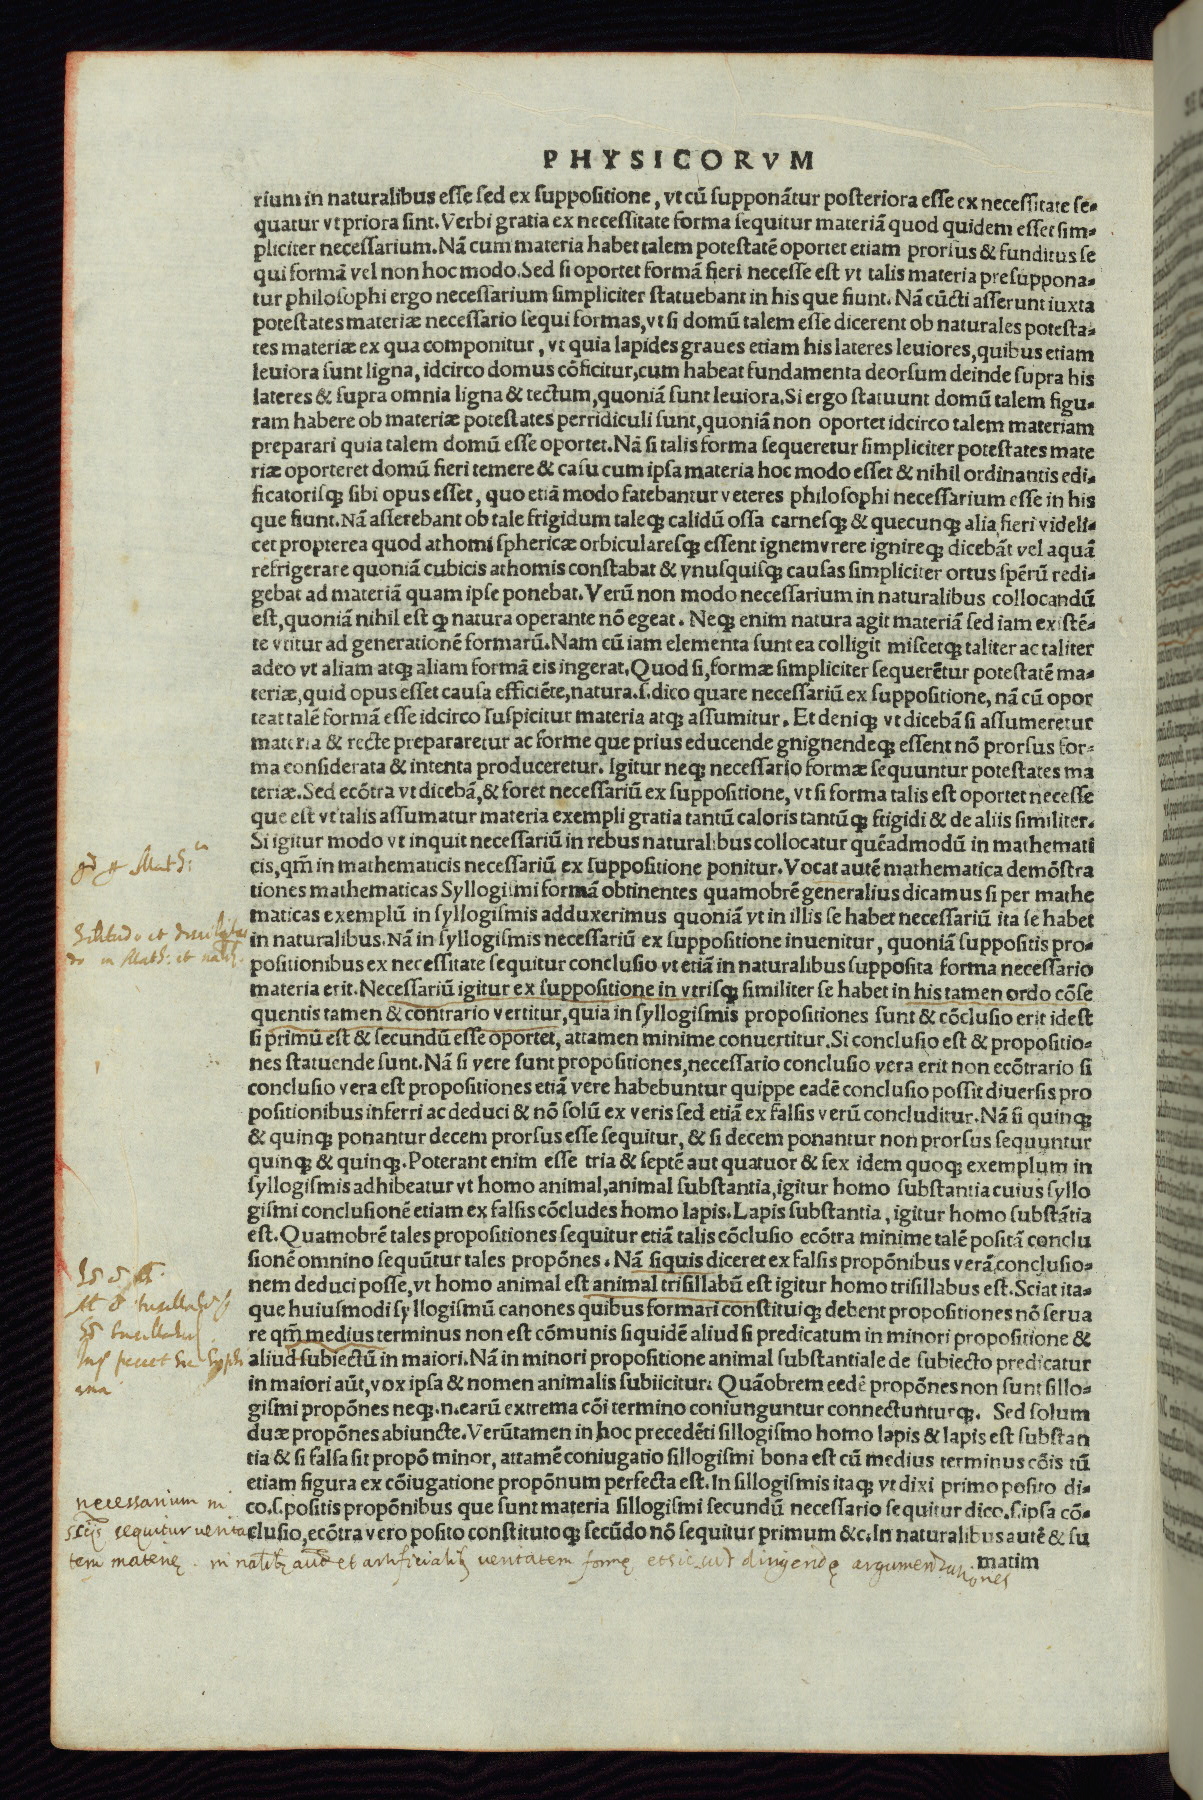 PHYSICORVM
rium in naturalibus esse sed ex suppositione, vt cũ supponãtur posteriora esse ex necessitate se-
quatur vt priora sint. Verbi gratia ex necessitate forma sequitur materiã quod quidem esset sim-
pliciter necessarium. Nã cum materia habet talem potestatẽ oportet etiam prorsus & funditus se
qui formã vel non hoc modo. Sed si oportet formã fieri necesse est vt talis materia presuppona-
tur philosophi ergo necessarium simpliciter statuebant in his que fiunt. Nã cũcti asserunt iuxta
potestates materiæ necessario sequi formas, vt si domũ talem esse dicerent ob naturales potesta-
tes materiæ ex qua componitur, vt quia lapides graues etiam his lateres leuiores, quibus etiam
leuiora sunt ligna, idcirco domus cõficitur, cum habeat fundamenta deorsum deinde supra his
lateres & supra omnia ligna & tectum, quoniã sunt leuiora. Si ergo statuunt domũ talem figu-
ram habere ob materiæ potestates perridiculi sunt, quoniã non oportet idcirco talem materiam
preparari quia talem domũ esse oportet. Nã si talis forma sequeretur simpliciter potestates mate
riæ oporteret domũ fieri temere & casu cum ipsa materia hoc modo esset & nihil ordinantis edi-
ficatorisqꝫ sibi opus esset, quo etiã modo fatebantur veteres philosophi necessarium esse in his
que fiunt. Nã asserebant ob tale frigidum taleqꝫ calidũ ossa carnesqꝫ & quecunqꝫ alia fieri videli-
cet propterea quod athomi sphericæ orbicularesqꝫ essent ignem vrere ignireqꝫ dicebãt vel aquã
refrigerare quoniã cubicis athomis constabat & vnusquisqꝫ causas simpliciter ortus spẽrũ redi-
gebat ad materiã quam ipse ponebat. Verũ non modo necessarium in naturalibus collocandũ
est, quoniã nihil est qꝫ natura operante nõ egeat. Neqꝫ enim natura agit materiã sed iam existẽ-
te vtitur ad generationẽ formarũ. Nam cũ iam elementa sunt ea colligit miscetqꝫ taliter ac taliter
adeo vt aliam atqꝫ aliam formã eis ingerat. Quod si, formæ simpliciter sequerẽtur potestatẽ ma-
teriæ, quid opus esset causa efficiẽte, natura .s. dico quare necessariũ ex suppositione, nã cũ opor
teat talẽ formã esse idcirco suspicitur materia atqꝫ assumitur. Et deniqꝫ vt dicebã si assumeretur
materia & recte prepararetur ac forme que prius educende gnignendeqꝫ essent nõ prorsus for-
ma considerata & intenta produceretur. Igitur neqꝫ necessario formæ sequuntur potestates ma
teriæ. Sed ecõtra vt dicebã, & foret necessariũ ex suppositione, vt si forma talis est oportet necesse
que est vt talis assumatur materia exempli gratia tantũ caloris tantũqꝫ ftigidi & de aliis similiter.
Si igitur modo vt inquit necessariũ in rebus naturalibus collocatur quẽadmodũ in mathemati
cis, qm̃ in mathematicis necessariũ ex suppositione ponitur. Vocat autẽ mathematica demõstra
tiones mathematicas Syllogismi formã obtinentes quamobrẽ generalius dicamus si per mathe
maticas exemplũ in syllogismis adduxerimus quoniã vt in illis se habet necessariũ ita se habet
in naturalibus. Nã in syllogismis necessariũ ex suppositione inuenitur, quoniã suppositis pro-
positionibus ex necessitate sequitur conclusio vt etiã in naturalibus supposita forma necessario
materia erit. Necessariũ igitur ex suppositione in vtrisqꝫ similiter se habet in his tamen ordo cõse
quentis tamen & contrario vertitur, quia in syllogismis propositiones sunt & cõclusio erit idest
si primũ est & secundũ esse oportet, attamen minime conuertitur. Si conclusio est & propositio-
nes statuende sunt. Nã si vere sunt propositiones, necessario conclusio vera erit non ecõtrario si
conclusio vera est propositiones etiã vere habebuntur quippe eadẽ conclusio possit diuersis pro
positionibus inferri ac deduci & nõ solũ ex veris sed etiã ex falsis verũ concluditur. Nã si quinqꝫ
& quinqꝫ ponantur decem prorsus esse sequitur, & si decem ponantur non prorsus sequuntur
quinqꝫ & quinqꝫ. Poterant enim esse tria & septẽ aut quatuor & sex idem quoqꝫ exemplum in
syllogismis adhibeatur vt homo animal, animal substantia, igitur homo substantia cuius syllo
gismi conclusionẽ etiam ex falsis cõcludes homo lapis. Lapis substantia, igitur homo substãtia
est. Quamobrẽ tales propositiones sequitur etiã talis cõclusio ecõtra minime talẽ positã conclu
sionẽ omnino sequũtur tales propõnes. Nã siquis diceret ex falsis propõnibus verã conclusio-
nem deduci posse, vt homo animal est animal trisillabũ est igitur homo trisillabus est. Sciat ita-
que huiusmodi syllogismũ canones quibus formari constituiqꝫ debent propositiones nõ serua
re qm̃ medius terminus non est cõmunis siquidẽ aliud si predicatum in minori propositione &
aliud subiectũ in maiori. Nã in minori propositione animal substantiale de subiecto predicatur
in maiori aũt, vox ipsa & nomen animalis subiicitur. Quãobrem eedẽ propõnes non sunt sillo-
gismi propõnes neqꝫ .n. earũ extrema cõi termino coniunguntur connectunturqꝫ. Sed solum
duæ propõnes abiuncte. Verũtamen in hoc precedẽti sillogismo homo lapis & lapis est substan
tia & si falsa sit propõ minor, attamẽ coniugatio sillogismi bona est cũ medius terminus cõis tũ
etiam figura ex cõiugatione propõnum perfecta est. In sillogismis itaqꝫ vt dixi primo posito di-
co .s. positis propõnibus que sunt materia sillogismi secundũ necessario sequitur dico .s. ipsa cõ-
clusio, ecõtra vero posito constitutoqꝫ secũdo nõ sequitur primum &c. In naturalibus autẽ & su
matim
necessarium in
sequitur verita
tem materię. in et artificialibꝫ veritatem formę et sic dirigendę argumentationes